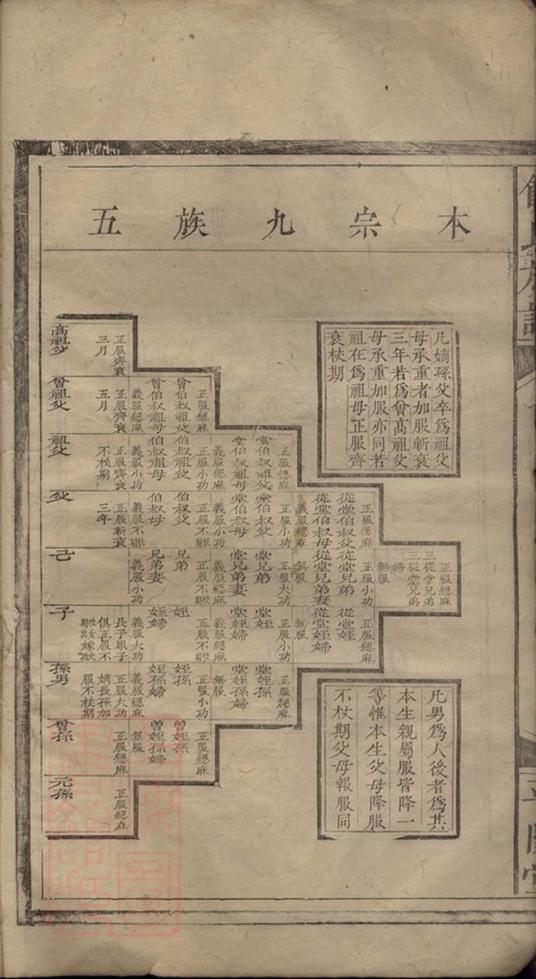 本宗九族五
凡嫡孫父卒為祖父
母承重者加服斬衰
三年若為曾高祖父
母承重加服亦同若
祖在為祖母正服齊
衰杖期
凡男為人後者為其
本生親屬服皆降一
等惟本生父母降服
不杖期父母報服同
高祖父
正服齊衰
三月
曾祖父
正服齊衰
五月
曾伯叔祖父
曾伯叔祖母
正服緦麻
義服緦麻
祖父
正服齊衰
不杖期
伯叔祖父
伯叔祖母
正服小功
義服小功
堂伯叔祖父
堂伯叔祖母
正服緦麻
義服緦麻
父
正服斬衰
三年
伯叔父
伯叔母
正服不杖
義服不杖
堂伯叔父
堂伯叔母
正服小功
義服小功
從堂伯叔父
從堂伯叔母
正服緦麻
義服緦麻
己
兄弟
兄弟妻
正服不杖
義服小功
堂兄弟
堂兄弟妻
正服大功
義服緦麻
從堂兄弟
從堂兄弟妻
正服小功
無服
三從堂兄弟
三從堂兄弟
婦
正服緦麻
無服
子
長子眾子
俱正服不
姪
姪婦
正服不杖
義服大功
堂姪
堂姪婦
正服小功
義服緦麻
從堂姪
從堂姪婦
正服緦麻
無服
孫男
正服大功
嫡長孫加
服不杖期
姪孫
姪孫婦
正服小功
義服緦麻
堂姪孫
堂姪孫婦
正服緦麻
無服
曾孫
正服緦麻
曾姪孫
曾姪孫婦
正服緦麻
無服
元孫
正服緦麻